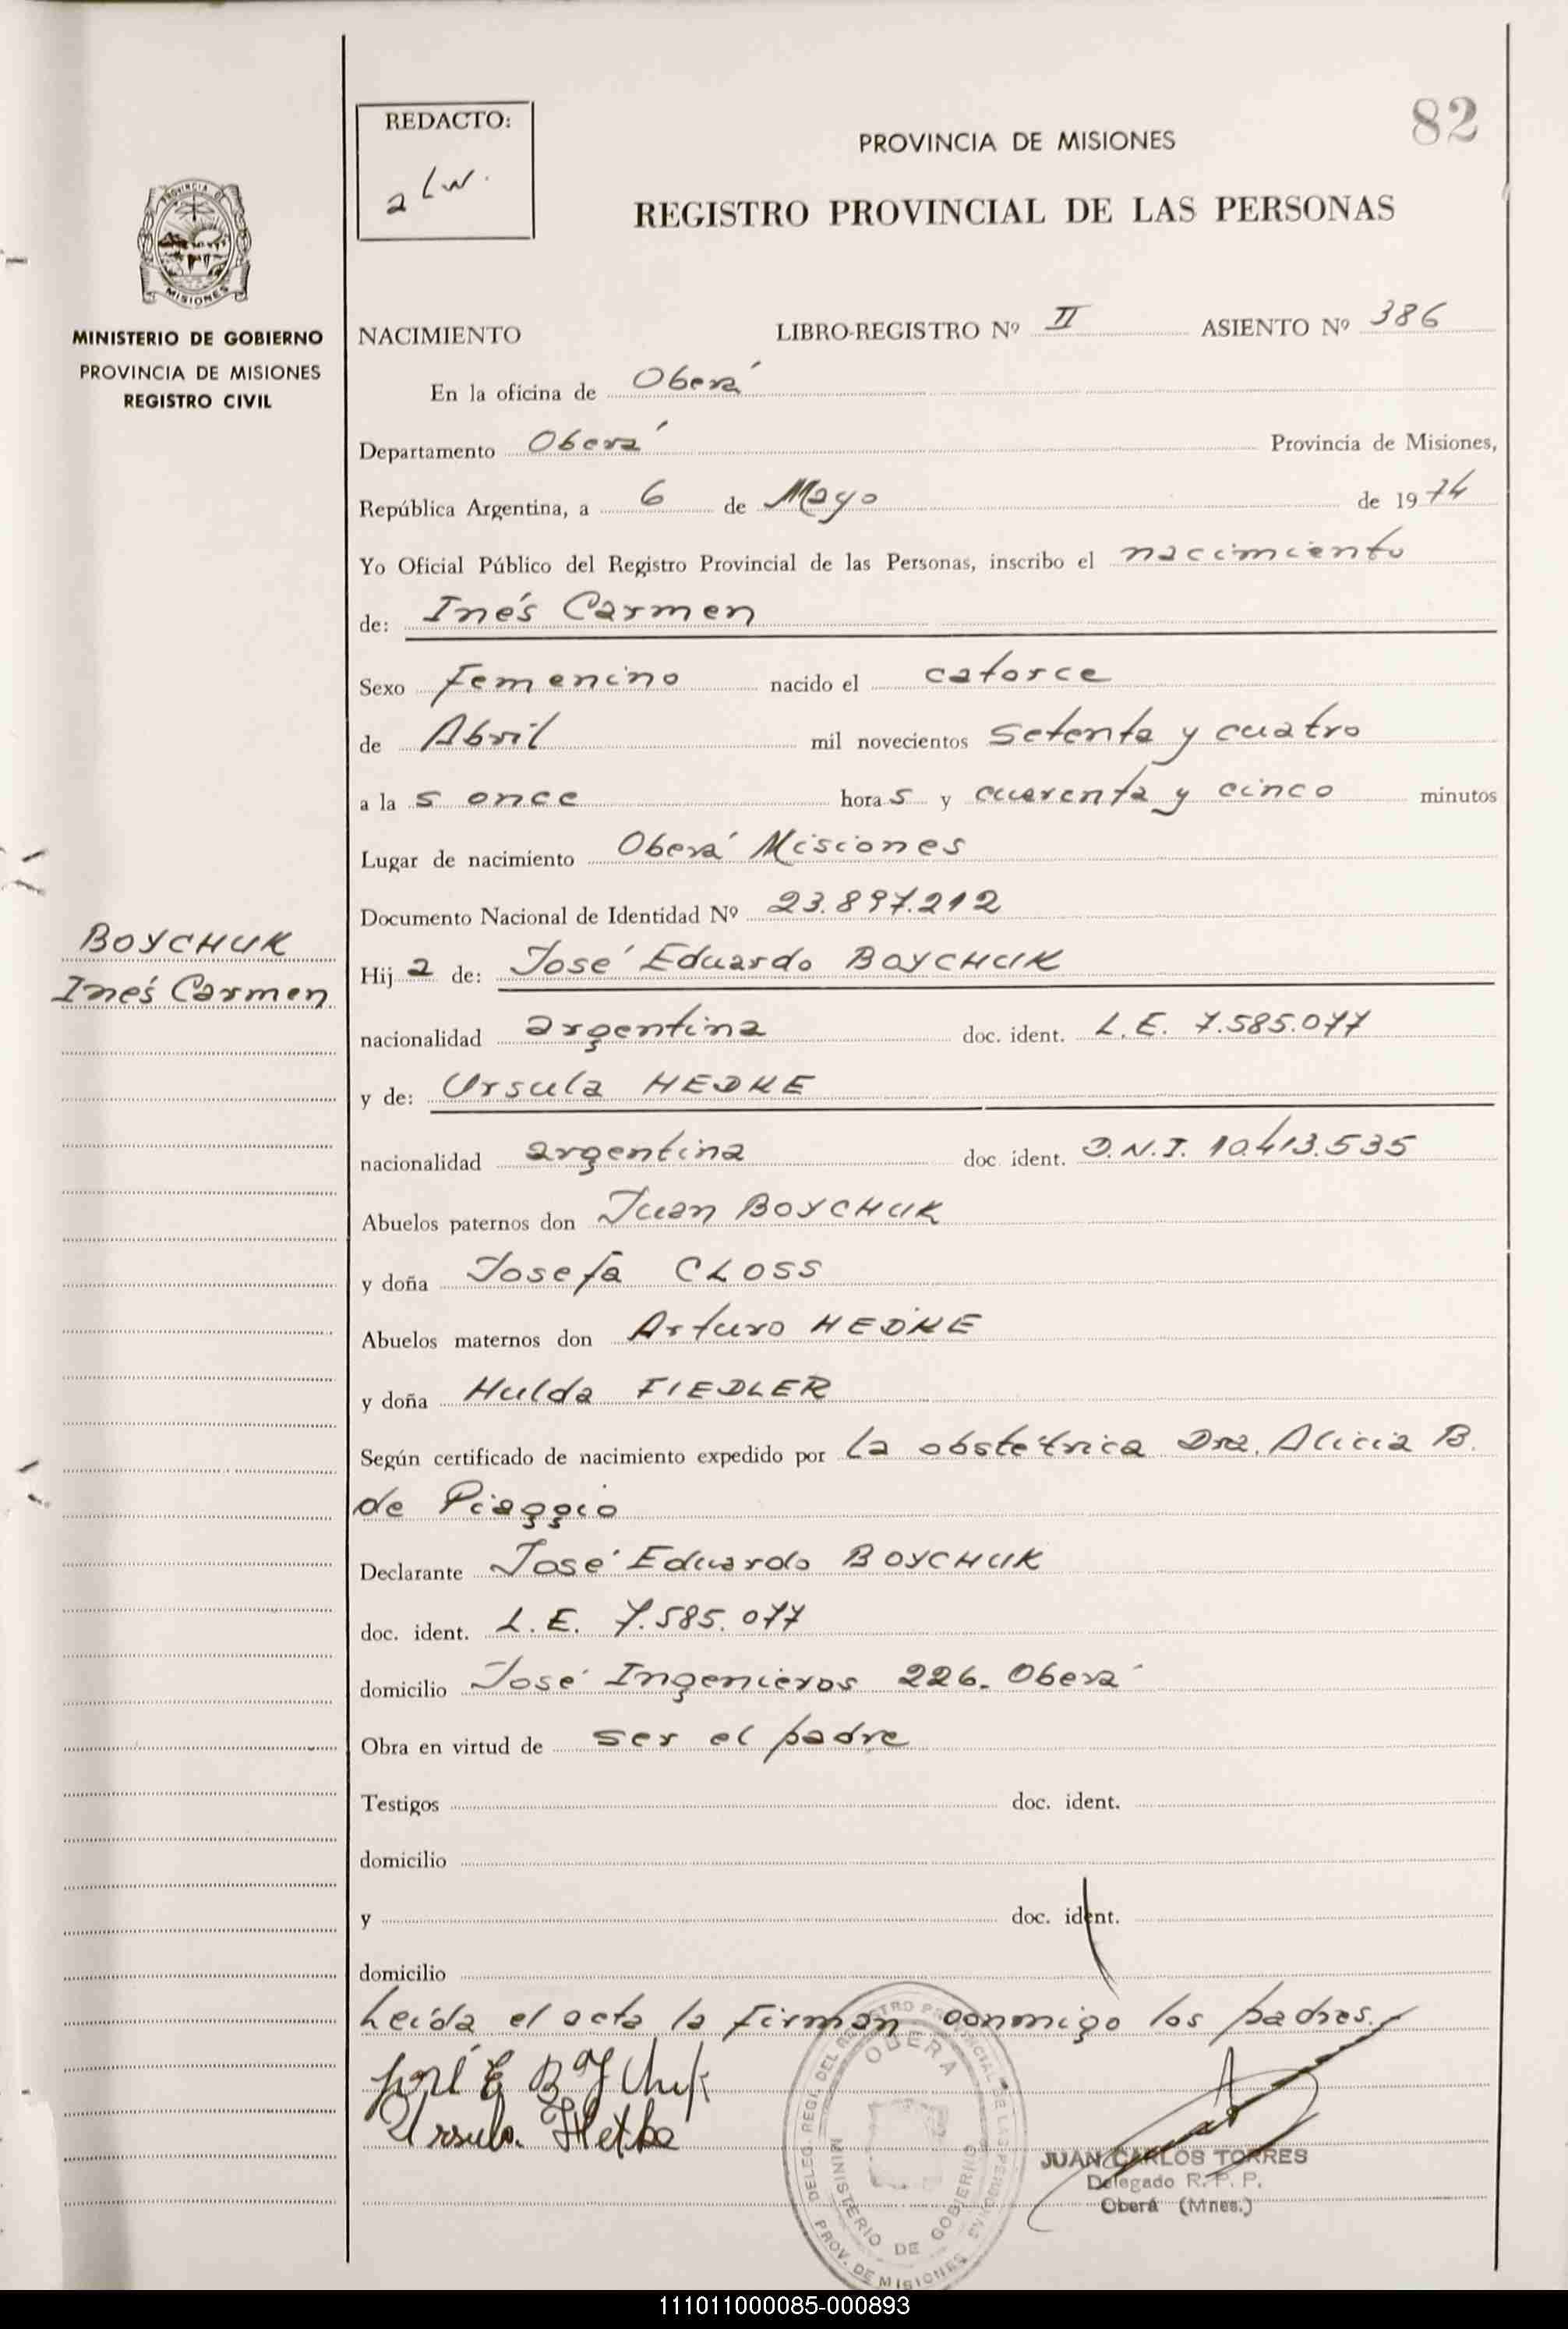 REDACTO:
a Lw.
82
PROVINCIA DE MISIONES
REGISTRO PROVINCIAL DE LAS PERSONAS
PROVINCIA DE
MISIONES
MINISTERIO DE GOBIERNO
PROVINCIA DE MISIONES
REGISTRO CIVIL
NACIMIENTO LIBRO-REGISTRO Nº II ASIENTO Nº 386
En la oficina de Oberá
Departamento Oberá Provincia de Misiones,
República Argentina, a 6 de Mayo de 1974
Yo Oficial Público del Registro Provincial de las Personas, inscribo el nacimiento
de: Inés Carmen
Sexo Femenino nacido el catorce
de Abril mil novecientos setenta y cuatro
a la s once hora s y cuarenta y cinco minutos
Lugar de nacimiento Oberá Misiones
Documento Nacional de Identidad Nº 23.897.212
BOYCHUK
Inés Carmen
Hij a de: José Eduardo BOYCHUK
nacionalidad argentina doc. ident. L.E. 7.585.077
y de: Ursula HEDKE
nacionalidad argentina doc. ident. D.N.I. 10.413.535
Abuelos paternos don Juan BOYCHUK
y doña Josefa CLOSS
Abuelos maternos don Arturo HEDKE
y doña Hulda FIEDLER
Según certificado de nacimiento expedido por la obstétrica Dra. Alicia B.
de Piaggio
Declarante José Eduardo BOYCHUK
doc. ident. L.E. 7.585.077
domicilio José Ingenieros 226. Oberá
Obra en virtud de ser el padre
Testigos doc. ident.
domicilio
y doc. ident.
domicilio
Leída el acta la firman conmigo los padres.
José E Boychuk
Ursula Hetke
DELEG. REGI. DEL REGISTRO PROVINCIAL DE LAS PERSONAS
OBERA
MINISTERIO DE GOBIERNO
PROV. DE MISIONES
JUAN CARLOS TORRES
Delegado R. P. P.
Oberá (Mnes.)
111011000085-000893